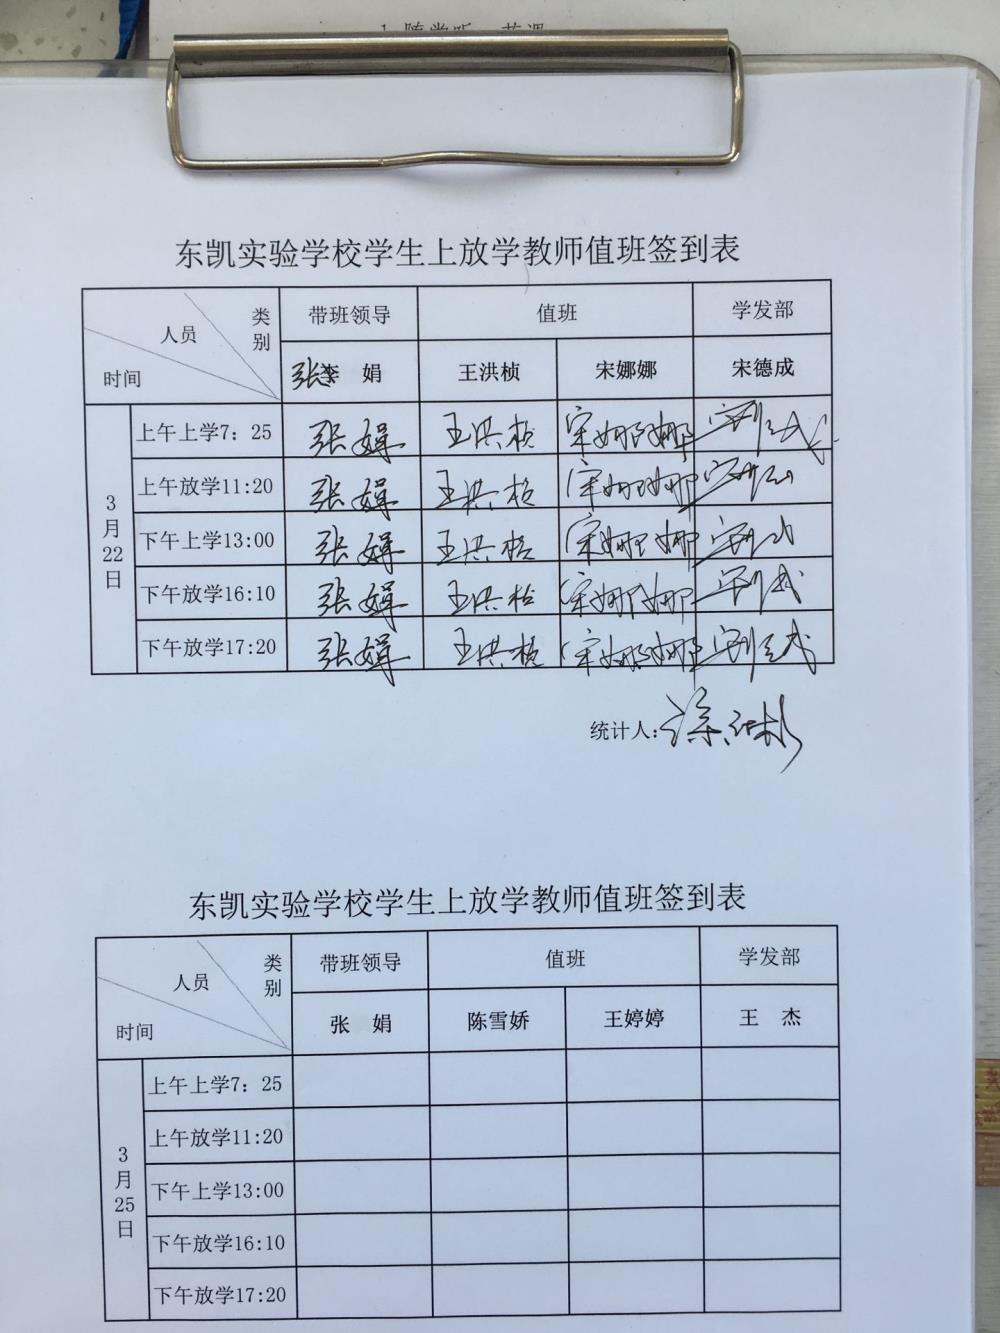 东凯实验学校学生上放学教师值班签到表
类别 人员 时间 带班领导 值班 学发部
张 娟 王洪桢 宋娜娜 宋德成
3月22日
上午上学7：25 张娟 王洪桢 宋娜娜 宋德成
上午放学11:20 张娟 王洪桢 宋娜娜 宋德成
下午上学13:00 张娟 王洪桢 宋娜娜 宋德成
下午放学16:10 张娟 王洪桢 宋娜娜 宋德成
下午放学17:20 张娟 王洪桢 宋娜娜 宋德成
统计人:
东凯实验学校学生上放学教师值班签到表
类别 人员 时间 带班领导 值班 学发部
张 娟 陈雪娇 王婷婷 王 杰
3月25日
上午上学7：25
上午放学11:20
下午上学13:00
下午放学16:10
下午放学17:20